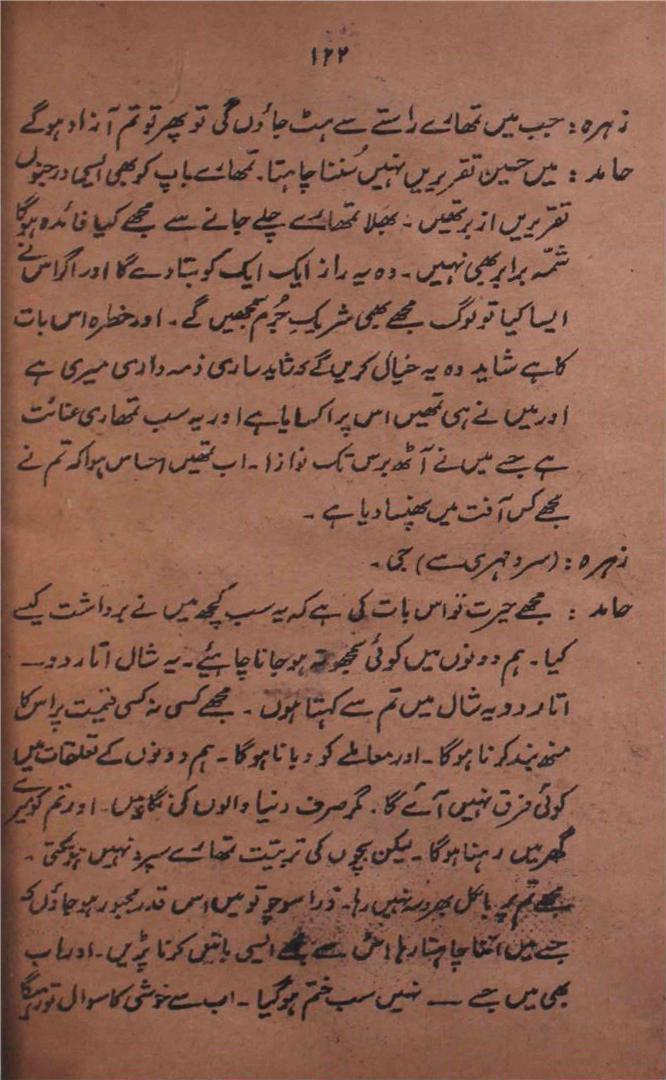 ۱۲۲
زہرہ : جب میں تمھارے راستے سے ہٹ جاؤں گی تو پھر تو تم آزاد ہوگے
حامد : میں حسین تقریریں نہیں سُننا چاہتا۔ تمھارے باپ کو بھی ایسی درجنوں
تقریریں ازبر تھیں۔ بھلا تمھارے چلے جانے سے مجھے کیا فائدہ ہوگا
شمّہ برابر بھی نہیں۔ وہ یہ راز ایک ایک کو بتا دے گا اور اگر اس نے
ایسا کیا تو لوگ مجھے بھی شریکِ جُرم سمجھیں گے۔ اور خطرہ اس بات
کا ہے شاید وہ یہ خیال کریں گے کہ شاید ساری ذمہ داری میری ہے
اور میں نے ہی تمھیں اس پر اکسایا ہے اور یہ سب تمھاری عنائت
ہے جسے میں نے آٹھ برس تک نوازا۔ اب تمھیں احساس ہوا کہ تم نے
مجھے کس آفت میں پھنسا دیا ہے۔
زہرہ : (سرد مہری سے) جی۔
حامد : مجھے حیرت تو اس بات کی ہے کہ یہ سب کچھ میں نے برداشت کیسے
کیا۔ ہم دونوں میں کوئی سمجھوتہ ہو جانا چاہیئے۔ یہ شال اتار دو ــــ
اتار دو یہ شال میں تم سے کہتا ہوں۔ مجھے کسی نہ کسی قیمت پر اس کا
منھ بند کرنا ہوگا۔ اور معاملے کو دبانا ہوگا۔ ہم دونوں کے تعلقات میں
کوئی فرق نہیں آئے گا۔ مگر صرف دنیا والوں کی نگاہ میں۔ اور تم کو میرے
گھر میں رہنا ہوگا۔ لیکن بچوں کی تربیّت تمھارے سپرد نہیں ہو سکتی۔
مجھے تم پر بالکل بھروسہ نہیں رہا۔ ذرا سوچو تو میں اس قدر مجبور ہو جاؤں کہ
جسے میں اتنا چاہتا رہا اس سے مجھے ایسی باتیں کرنا پڑیں۔ اور اب
بھی میں جسے ــــ نہیں سب ختم ہوگیا۔ اب سے خوشی کا سوال تو